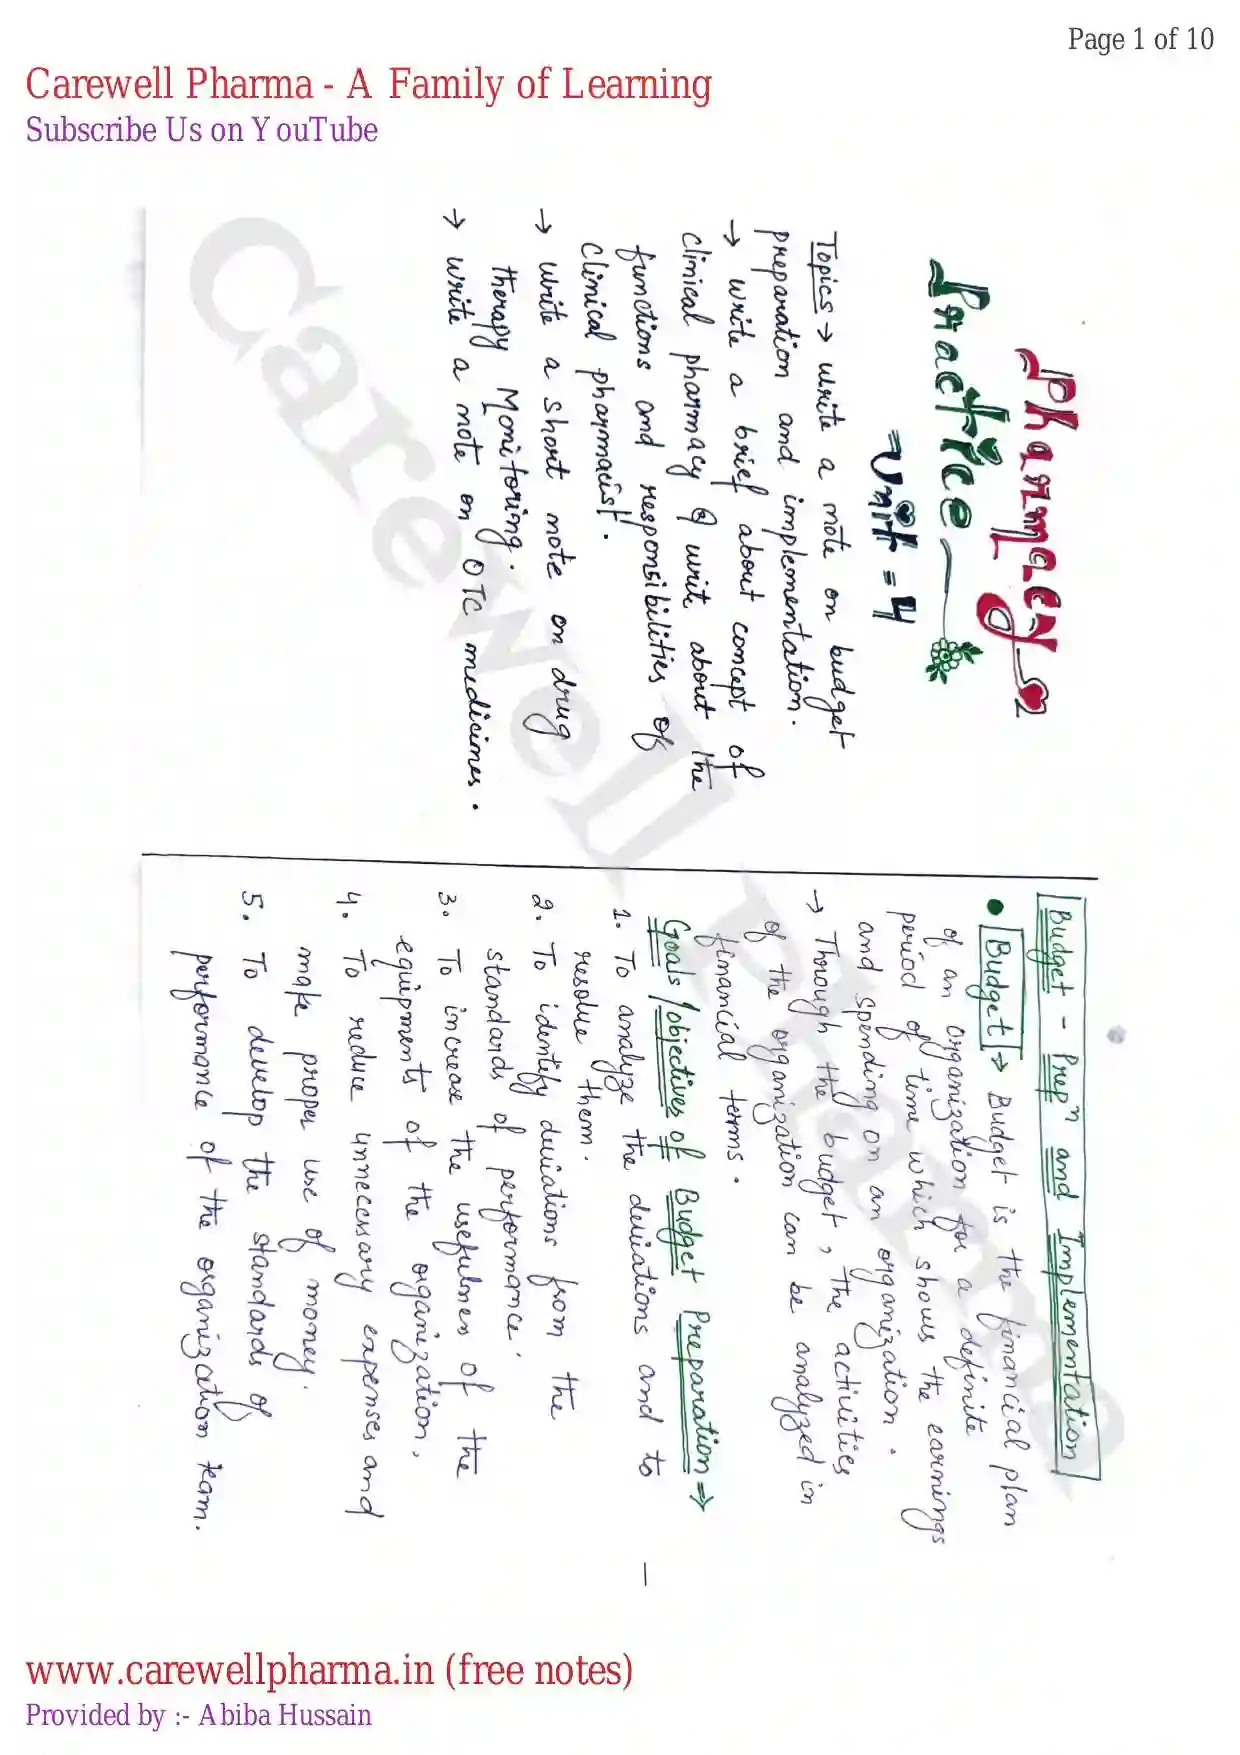 Page 1 of 10
Carewell Pharma - A Family of Learning
Subscribe Us on YouTube
Pharmacy
Practice
Unit = 4
Topics → write a note on budget
preparation and implementation.
→ write a brief about concept of
clinical pharmacy & write about the
functions and responsibilities of
clinical pharmacist.
→ write a short note on drug
therapy Monitoring.
→ write a note on OTC medicines.
Budget - Prepⁿ and Implementation
• Budget → Budget is the financial plan
of an organization for a definite
period of time which shows the earnings
and spending on an organization.
→ Through the budget, the activities
of the organization can be analyzed in
financial terms.
Goals/objectives of Budget Preparation ⇒
1. To analyze the deviations and to
resolve them.
2. To identify deviations from the
standards of performance.
3. To increase the usefulness of the
equipments of the organization.
4. To reduce unnecessary expenses and
make proper use of money.
5. To develop the standards of
performance of the organization team.
Carewell Pharma
www.carewellpharma.in (free notes)
Provided by :- Abiba Hussain